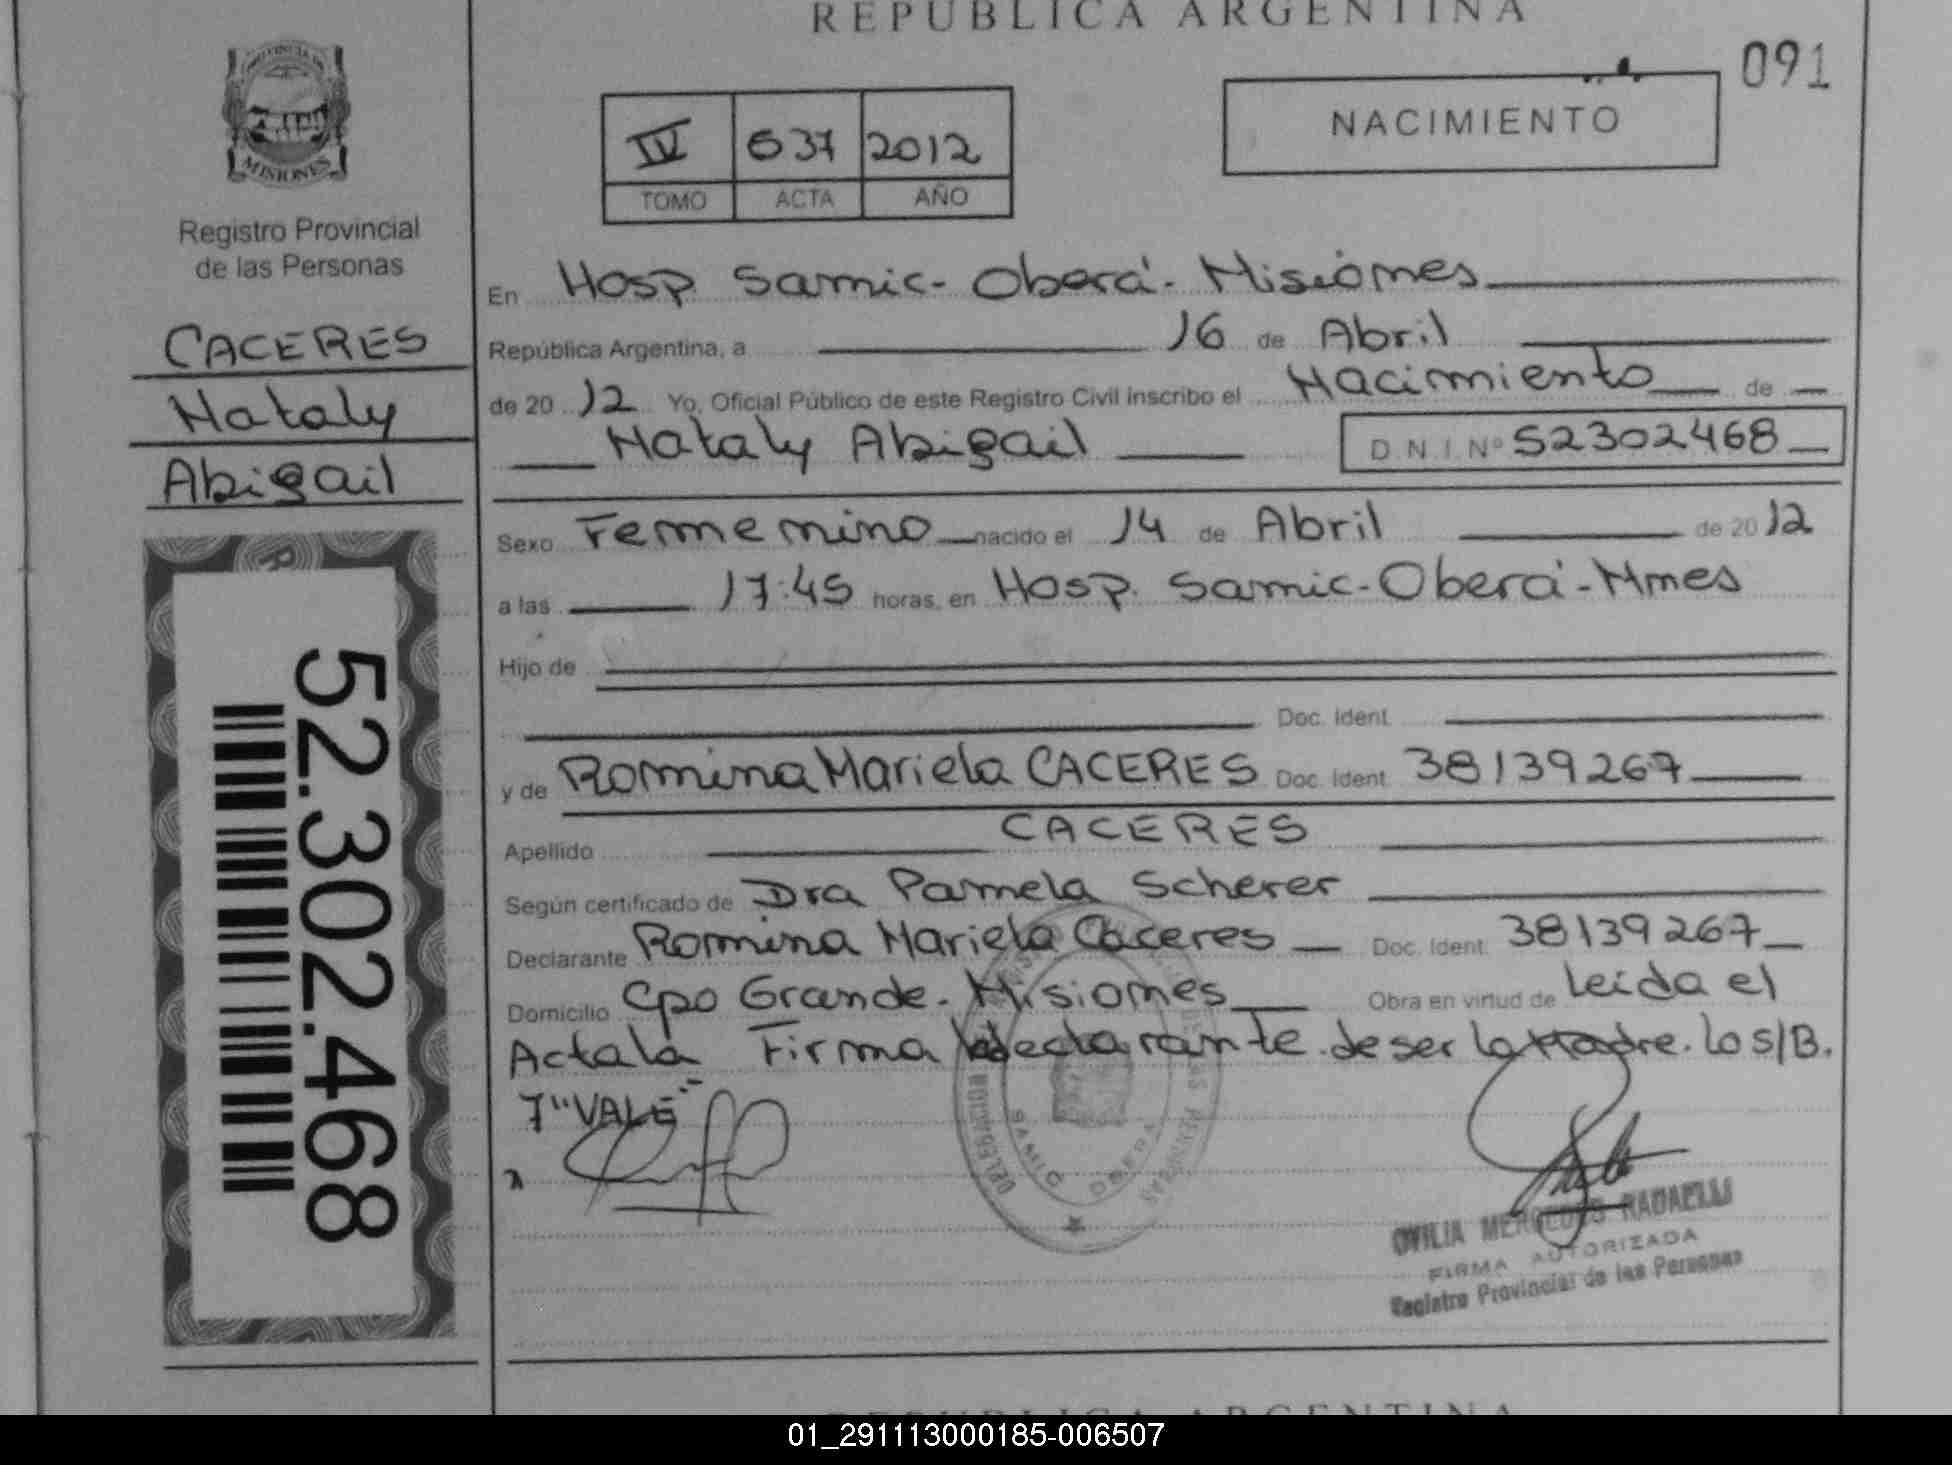 REPUBLICA ARGENTINA
091
PROVINCIA DE
MISIONES
Registro Provincial
de las Personas
IV 637 2012
TOMO ACTA AÑO
NACIMIENTO
CACERES
Nataly
Abigail
52.302.468
En Hosp Samic- Oberá- Misiones
República Argentina, a 16 de Abril
de 20 12 Yo, Oficial Público de este Registro Civil inscribo el Nacimiento de
Nataly Abigail D.N.I. Nº 52302468
Sexo Femenino nacido el 14 de Abril de 20 12
a las 17:45 horas, en Hosp. Samic-Oberá-Mnes
Hijo de
Doc. Ident.
y de Romina Mariela CACERES Doc. Ident. 38139267
Apellido CACERES
Según certificado de Dra Pamela Scherer
Declarante Romina Mariela Caceres Doc. Ident. 38139267
Domicilio Cpo Grande. Misiones Obra en virtud de Leida el
Acta la Firma declarante. de ser la Madre. lo s/B.
7 "VALE"
DELEGACION
SAMIC OBERA
DE LAS PERSONAS
MERCEDES RADAELLI
FIRMA AUTORIZADA
Registro Provincial de las Personas
REPUBLICA ARGENTINA
01_291113000185-006507